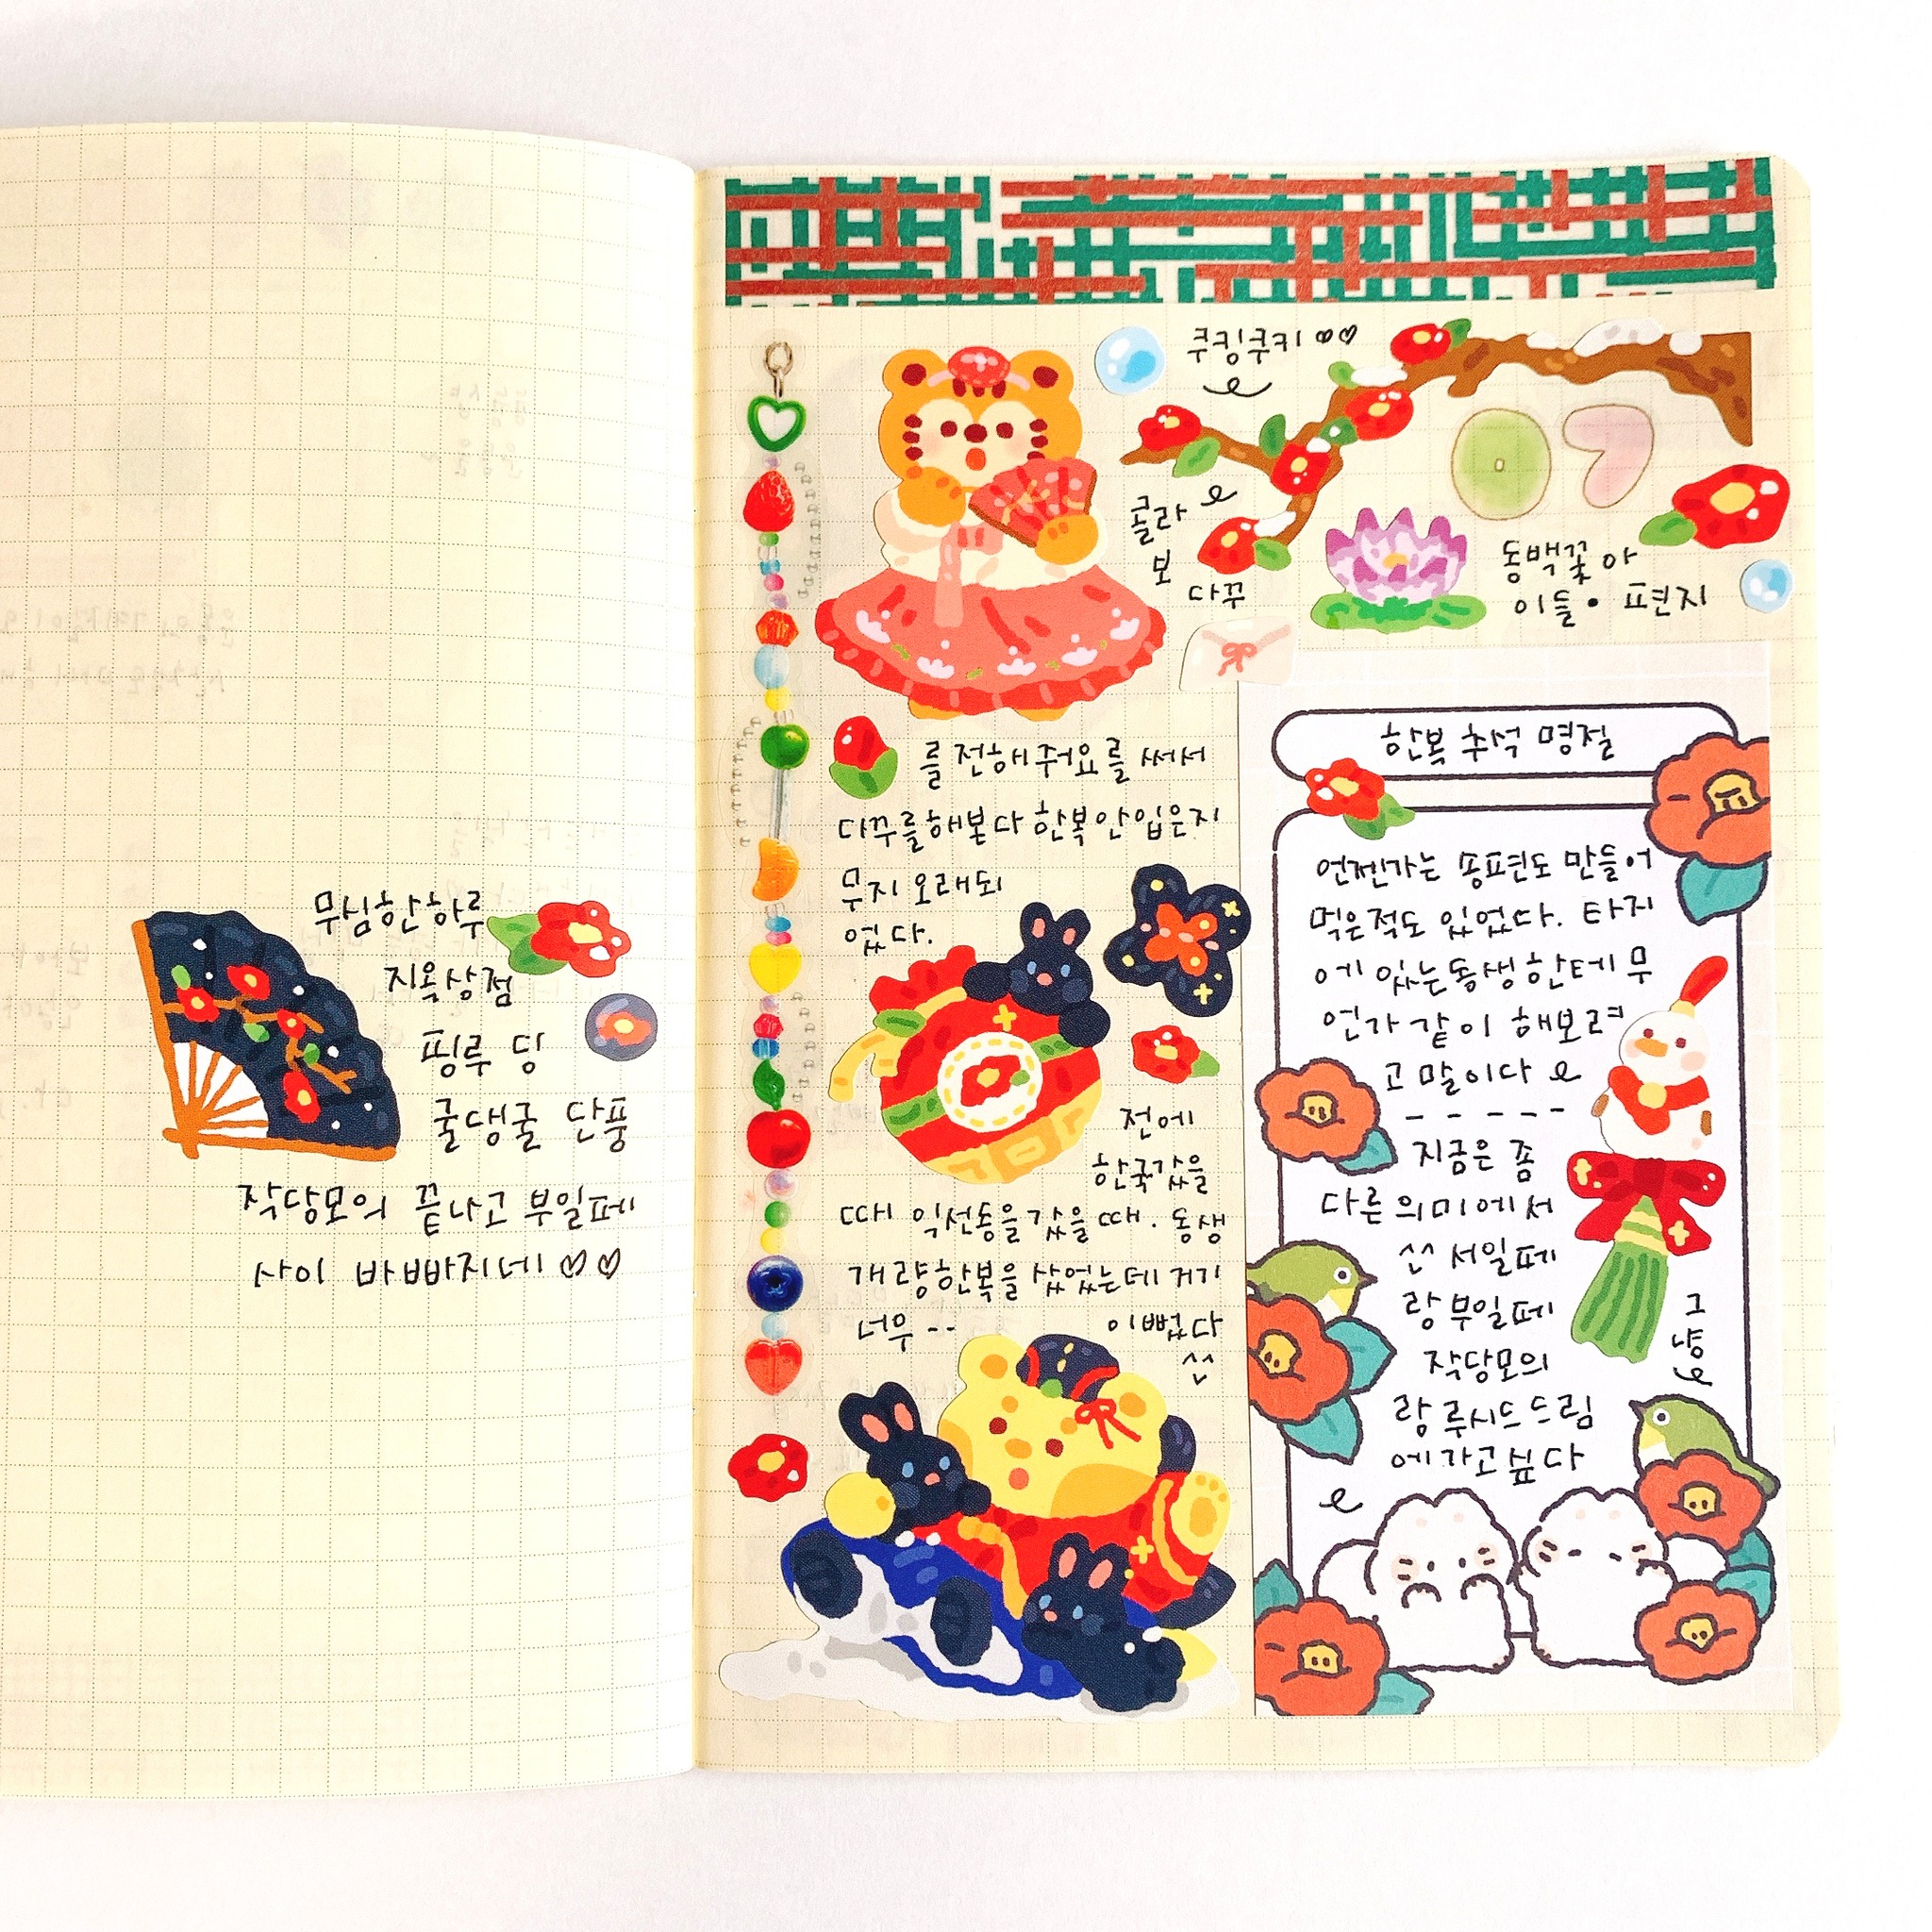 무심한하루
지옥상점
핑루 당
굴댕굴 단풍
작당모의 끝나고 부일페
사이 바빠지네 ♡♡
쿠킹쿠키 ♡♡
콜라
보
다꾸
07
동백꽃 아
이들• 표현지
를 전해줘요를 써서
다꾸를해본다 한복안입은지
무지 오래되
었다.
전에
한국갔을
때 익선동을 갔을 때. 동생
개량한복을 샀었는데 거기
너무 -- 이뻤다
^^
한복 추석 명절
언젠가는 송편도 만들어
먹은적도 있었다. 타지
에 있는동생한테 무
언가 같이 해보려
고 말이다
- - - - -
지금은 좀
다른 의미에서
^^ 서일페
랑 부일페
작당모의
랑 루시드드림
에가고싶다
그
냥